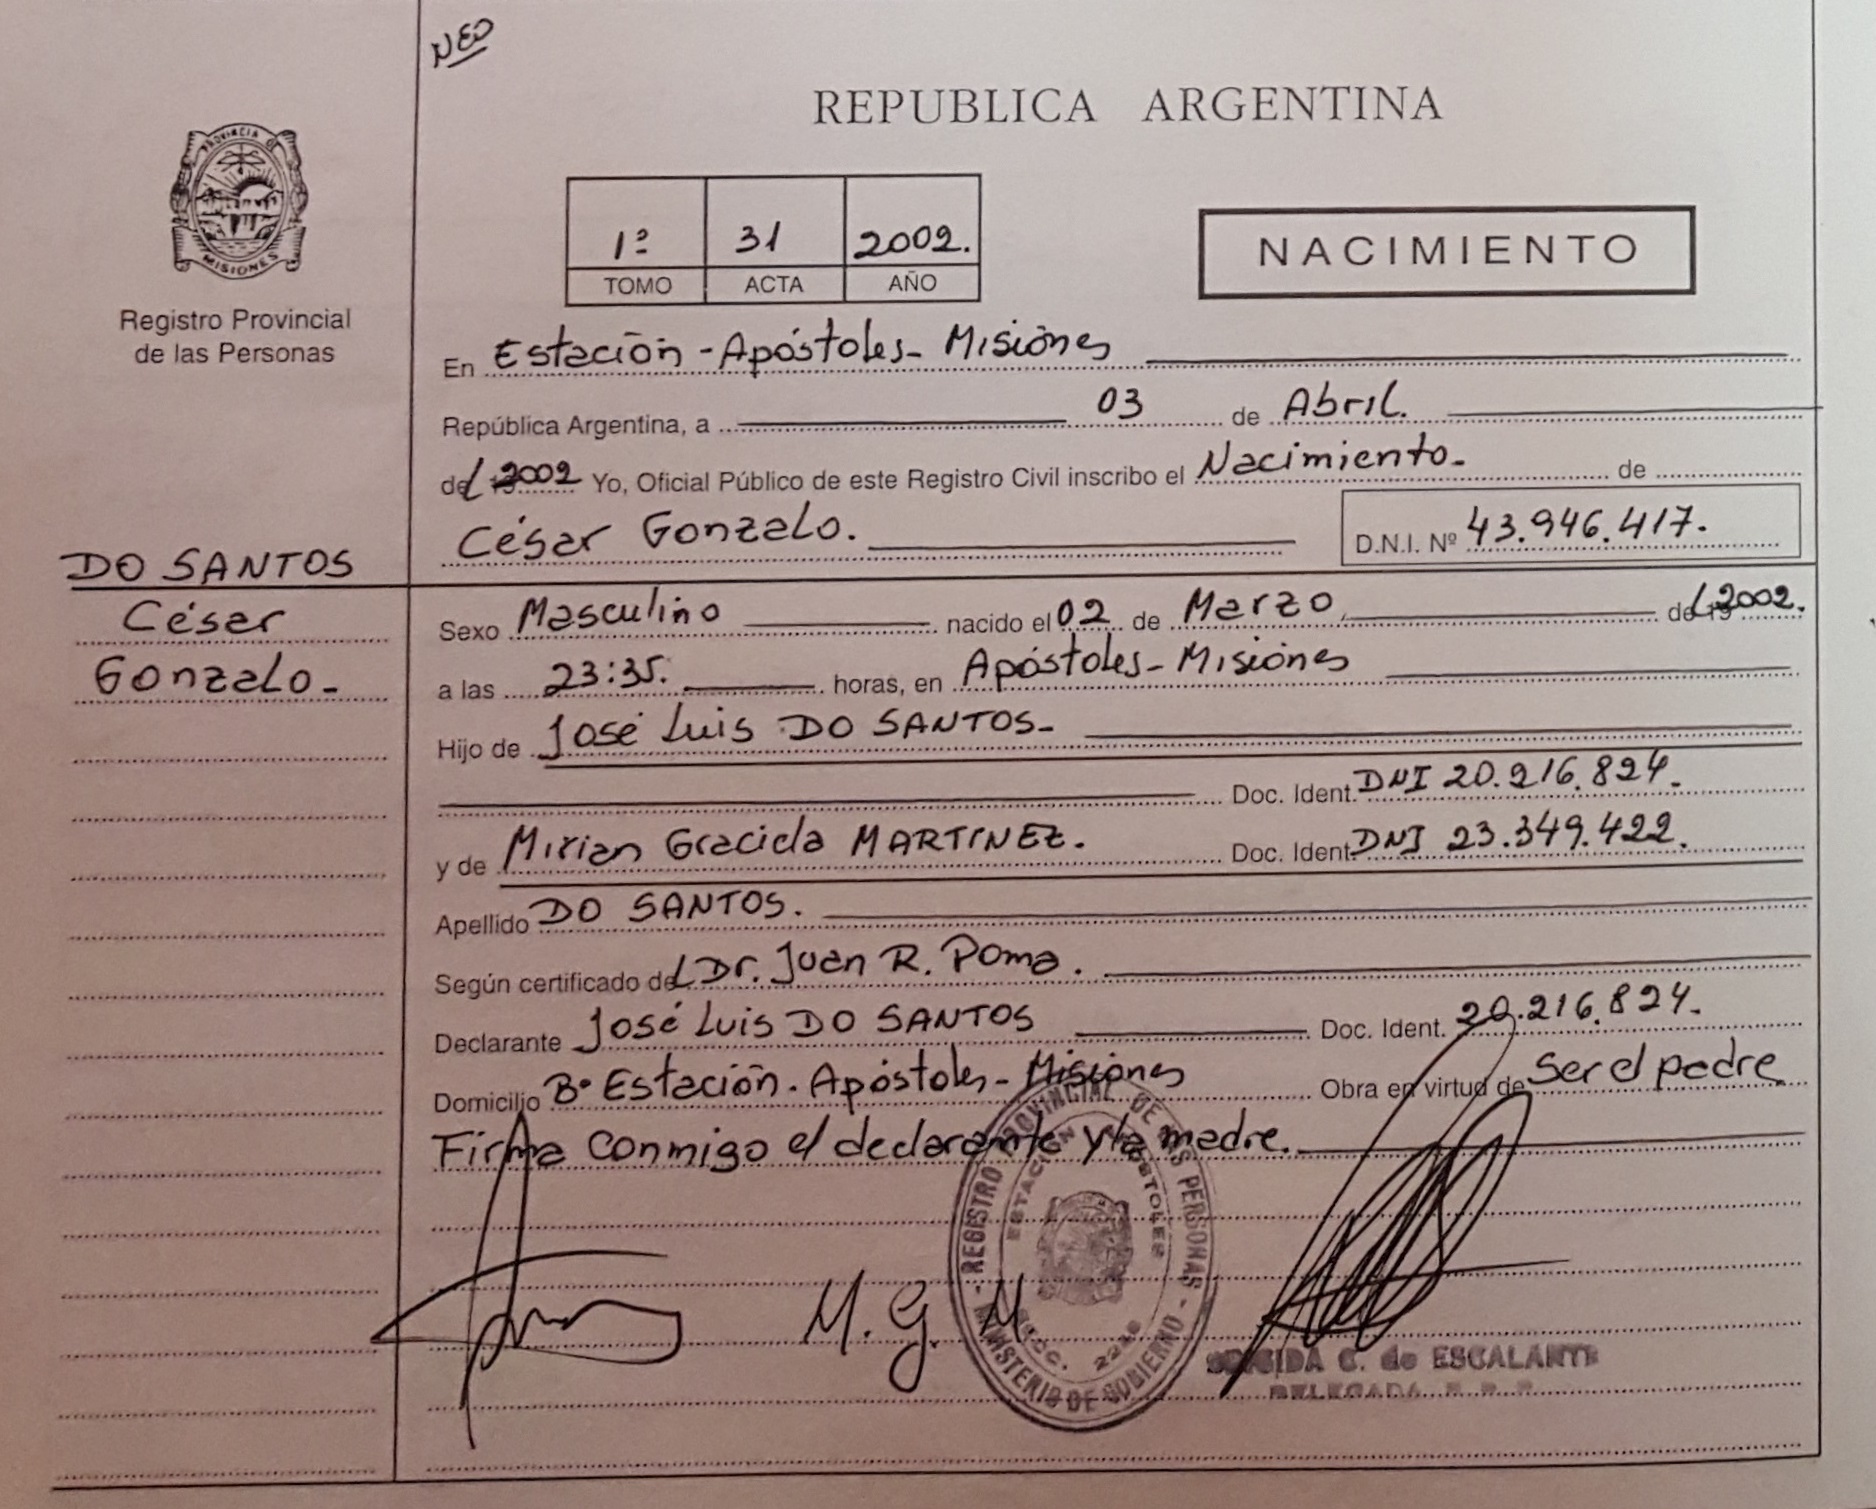 NEO
REPUBLICA ARGENTINA
PROVINCIA DE
MISIONES
Registro Provincial
de las Personas
1º 31 2002.
TOMO ACTA AÑO
NACIMIENTO
En Estación - Apóstoles - Misiones
República Argentina, a 03 de Abril.
del 2002 Yo, Oficial Público de este Registro Civil inscribo el Nacimiento- de
César Gonzalo. D.N.I. Nº 43.946.417.
DO SANTOS
César
Gonzalo-
Sexo Masculino nacido el 02 de Marzo, del 2002.
a las 23:35. horas, en Apóstoles - Misiones
Hijo de José Luis DO SANTOS-
Doc. Ident. DNI 20.216.824.
y de Mirian Graciela MARTINEZ. Doc. Ident. DNI 23.349.422.
Apellido DO SANTOS.
Según certificado del Dr. Juan R. Poma.
Declarante José Luis DO SANTOS Doc. Ident. 20.216.824.
Domicilio Bº Estación. Apóstoles - Misiones Obra en virtud de ser el padre
Firma conmigo el declarante y la madre.
REGISTRO PROVINCIAL DE LAS PERSONAS - MINISTERIO DE GOBIERNO -
ESTACION APOSTOLES
M. G. M
C. de ESCALANTE
DELEGADA